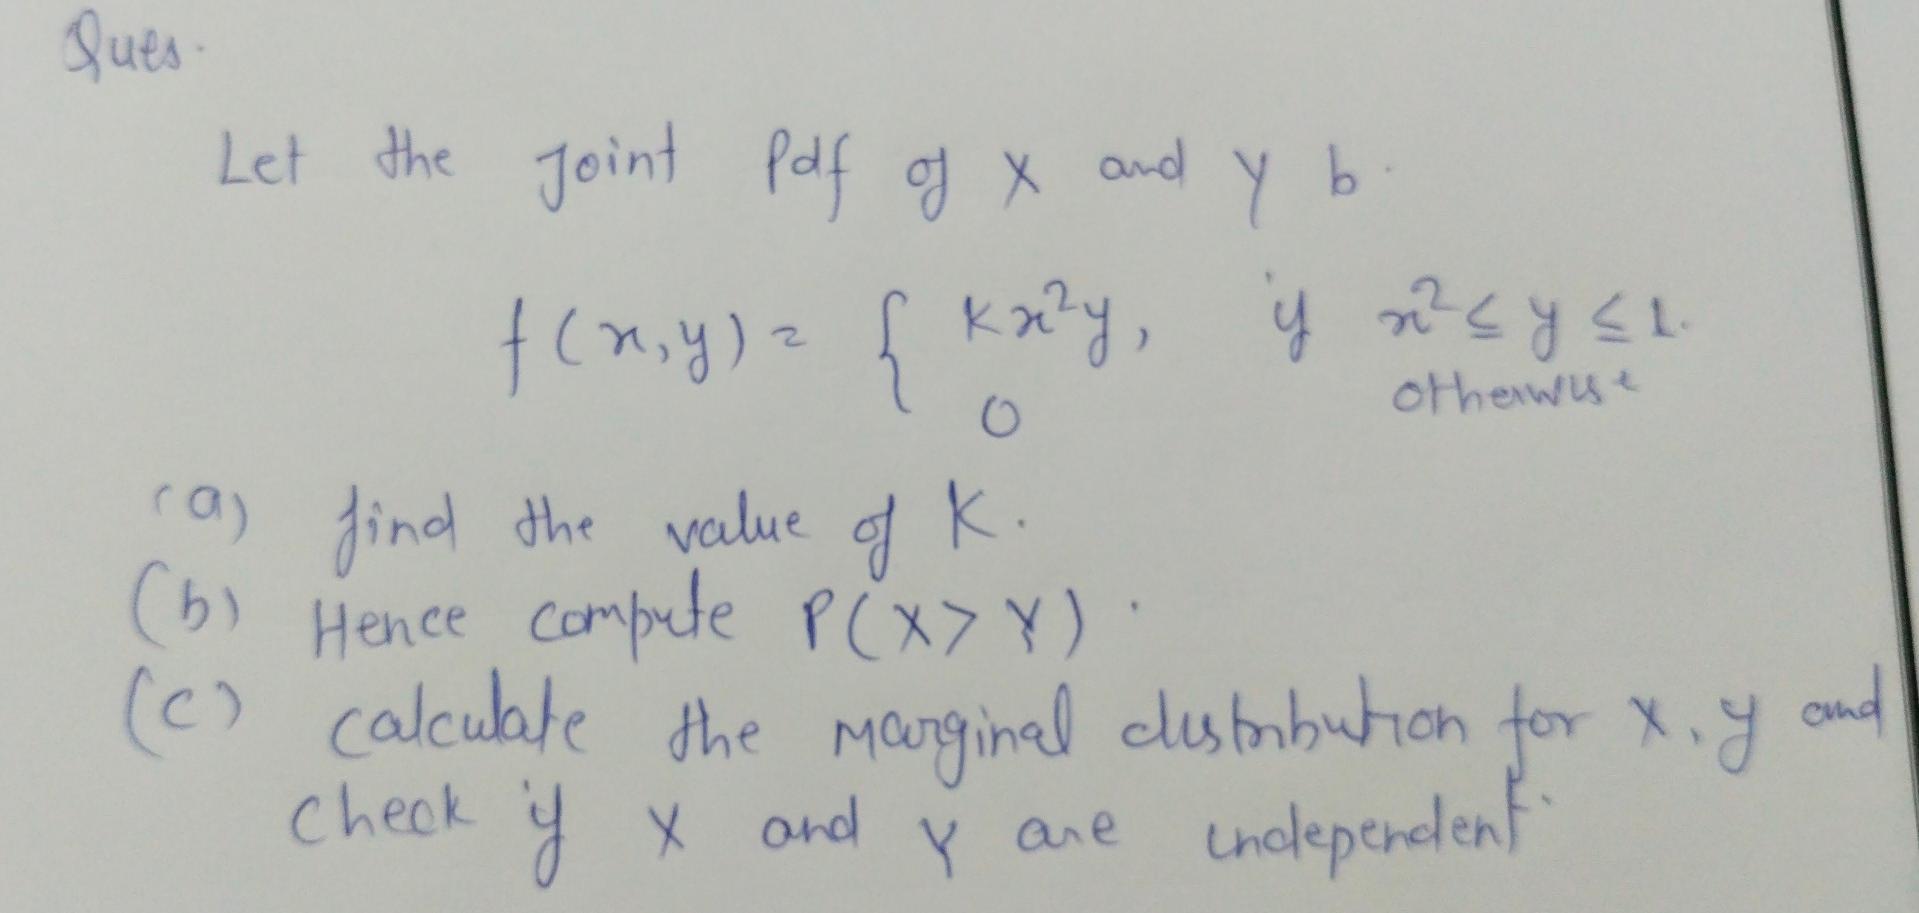 Ques.
Let the Joint Pdf of X and Y b.
f(x,y) = { Kx²y, if x² ≤ y ≤ 1.
0 otherwise
(a) find the value of K.
(b) Hence compute P(X>Y).
(c) calculate the marginal distribution for X, y and
check if X and Y are independent.